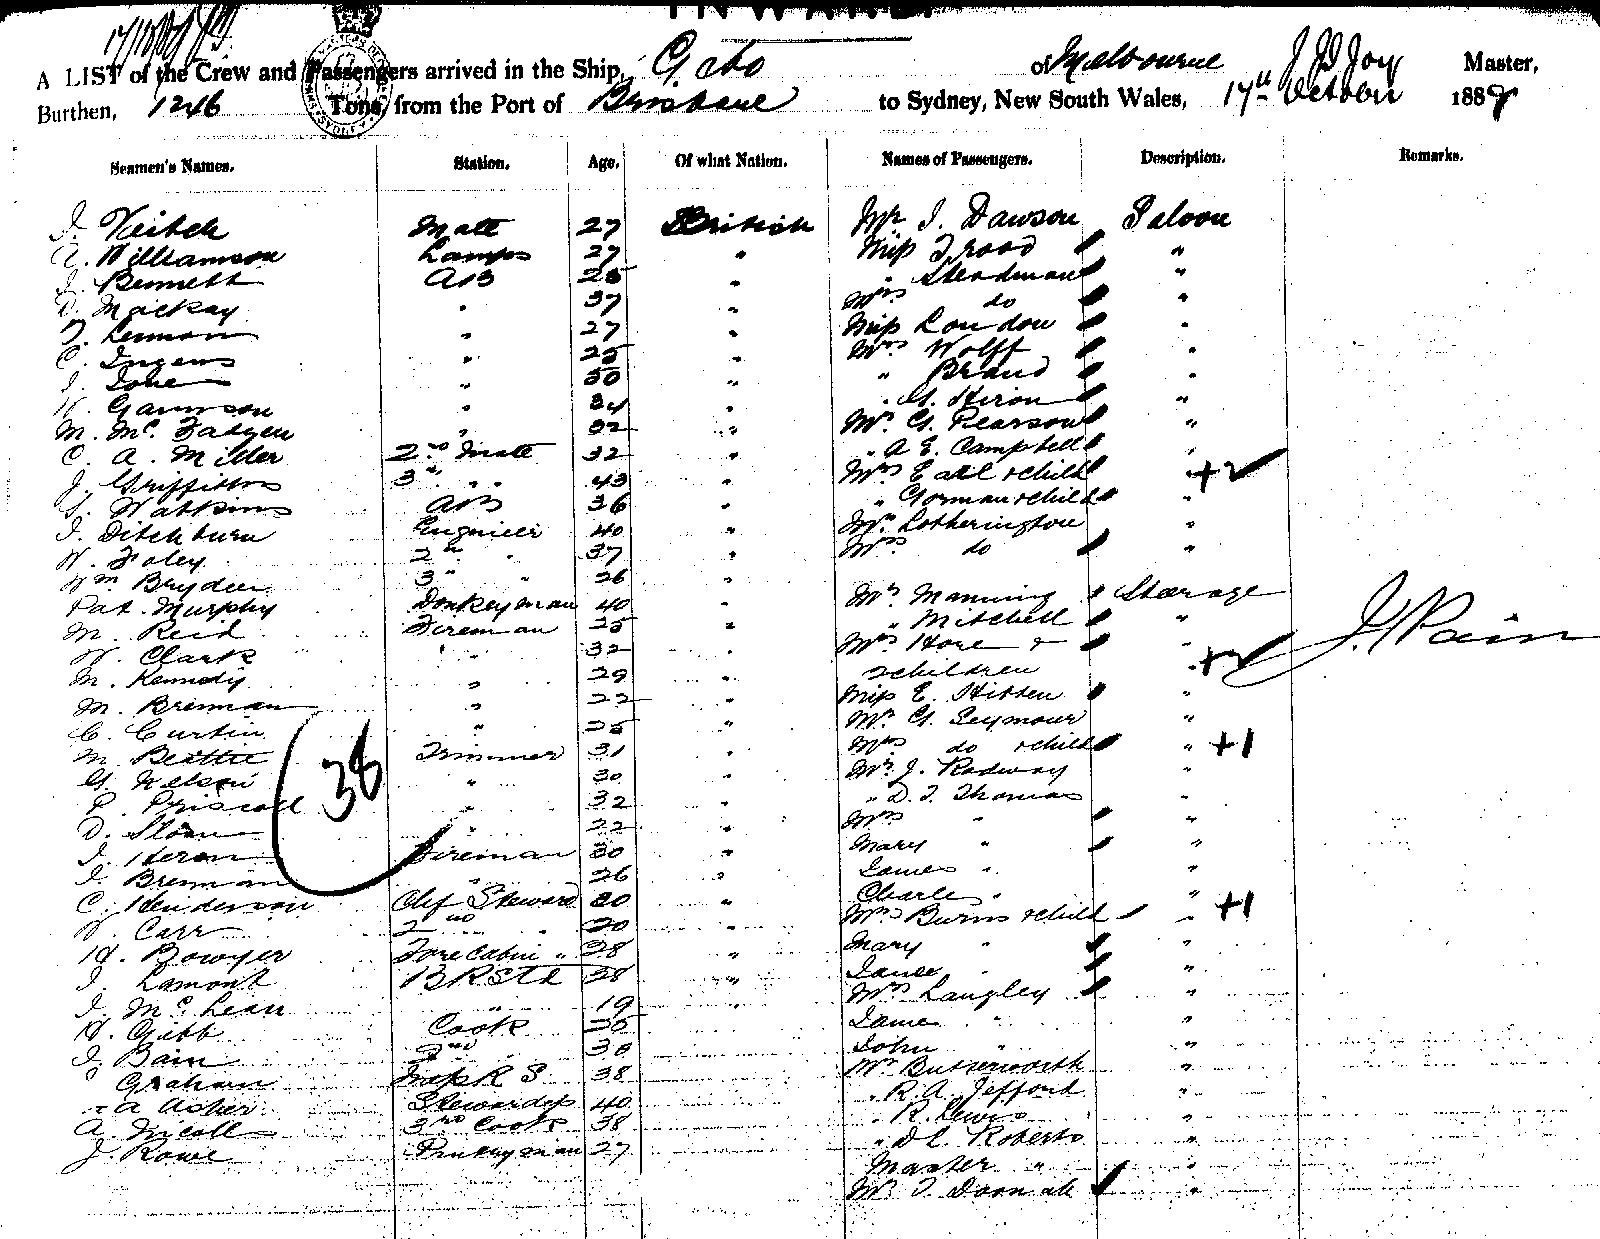 INWARD
A LIST of the Crew and Passengers arrived in the Ship, Gabo of Melbourne J B Joy Master,
Burthen, 1246 Tons, from the Port of Brisbane to Sydney, New South Wales, 17th October 188
Seamen's Names. Station. Age. Of what Nation. Names of Passengers. Description. Remarks.
J. Veitch Mate 27 British Mr J. Dawson Saloon
Williamson Lamps 27 " Miss Trood "
J. Bennett AB 25 " " Steadman "
D. Mackay " 37 " Mrs do "
T. Lennon " 27 " Miss Loudon "
C. " 25 " Mrs Wolff "
J. " 30 " " Brand "
W. " 34 " " G. Hiron "
M. McFadgen " 32 " Mr G. Pearson "
C. A. Miller 2nd Mate 32 " " A E. Campbell "
J. Griffiths 3rd " 43 " Mrs Earl & child " +2
Watkins AB 36 " " Gorman & child "
J. Ditchburn Engineer 40 " Mr Lotherington "
W. Foley 2nd " 37 " Mrs do "
Wm Bryden 3 " 26 "
Pat. Murphy Donkeyman 40 " Mr Manning Steerage
M. Reid Fireman 25 " " Mitchell "
W. Clark " 32 " Mrs Hore &
M. Kennedy " 29 " 2 children " +2
M. Brennan " 22 " Miss E. "
C. Curtin " 25 " Mr G. Seymour "
M. Beattie Trimmer 31 " Mrs do & child " +1
G. Nelson " 30 " Mr J. Radway "
38
P. Driscoll " 32 " " D. T. Thomas "
D. Sloan " 22 " Mrs " "
J. Heron Fireman 30 " Mary " "
J. Brennan " 26 " James " "
C. Henderson Chf Steward 30 " Charles " "
W. Carr 2nd " 20 " Mrs Burns & child " +1
H. Bowyer Fore cabin " 28 " Mary " "
J. Lamont B R Std 28 " "
J. McLean " 19 " Mrs Langley "
H. Gibb Cook James " "
J. Bain 2nd " 30 John " "
Graham Mess R S 38 Mr Butterworth "
A Asher Stewardess 40 " R. A. Jefford "
A. Nicoll 3rd Cook 38 " R. Lewis "
J. Rowe 27 " D L Roberts "
Master " "
Mr T. "